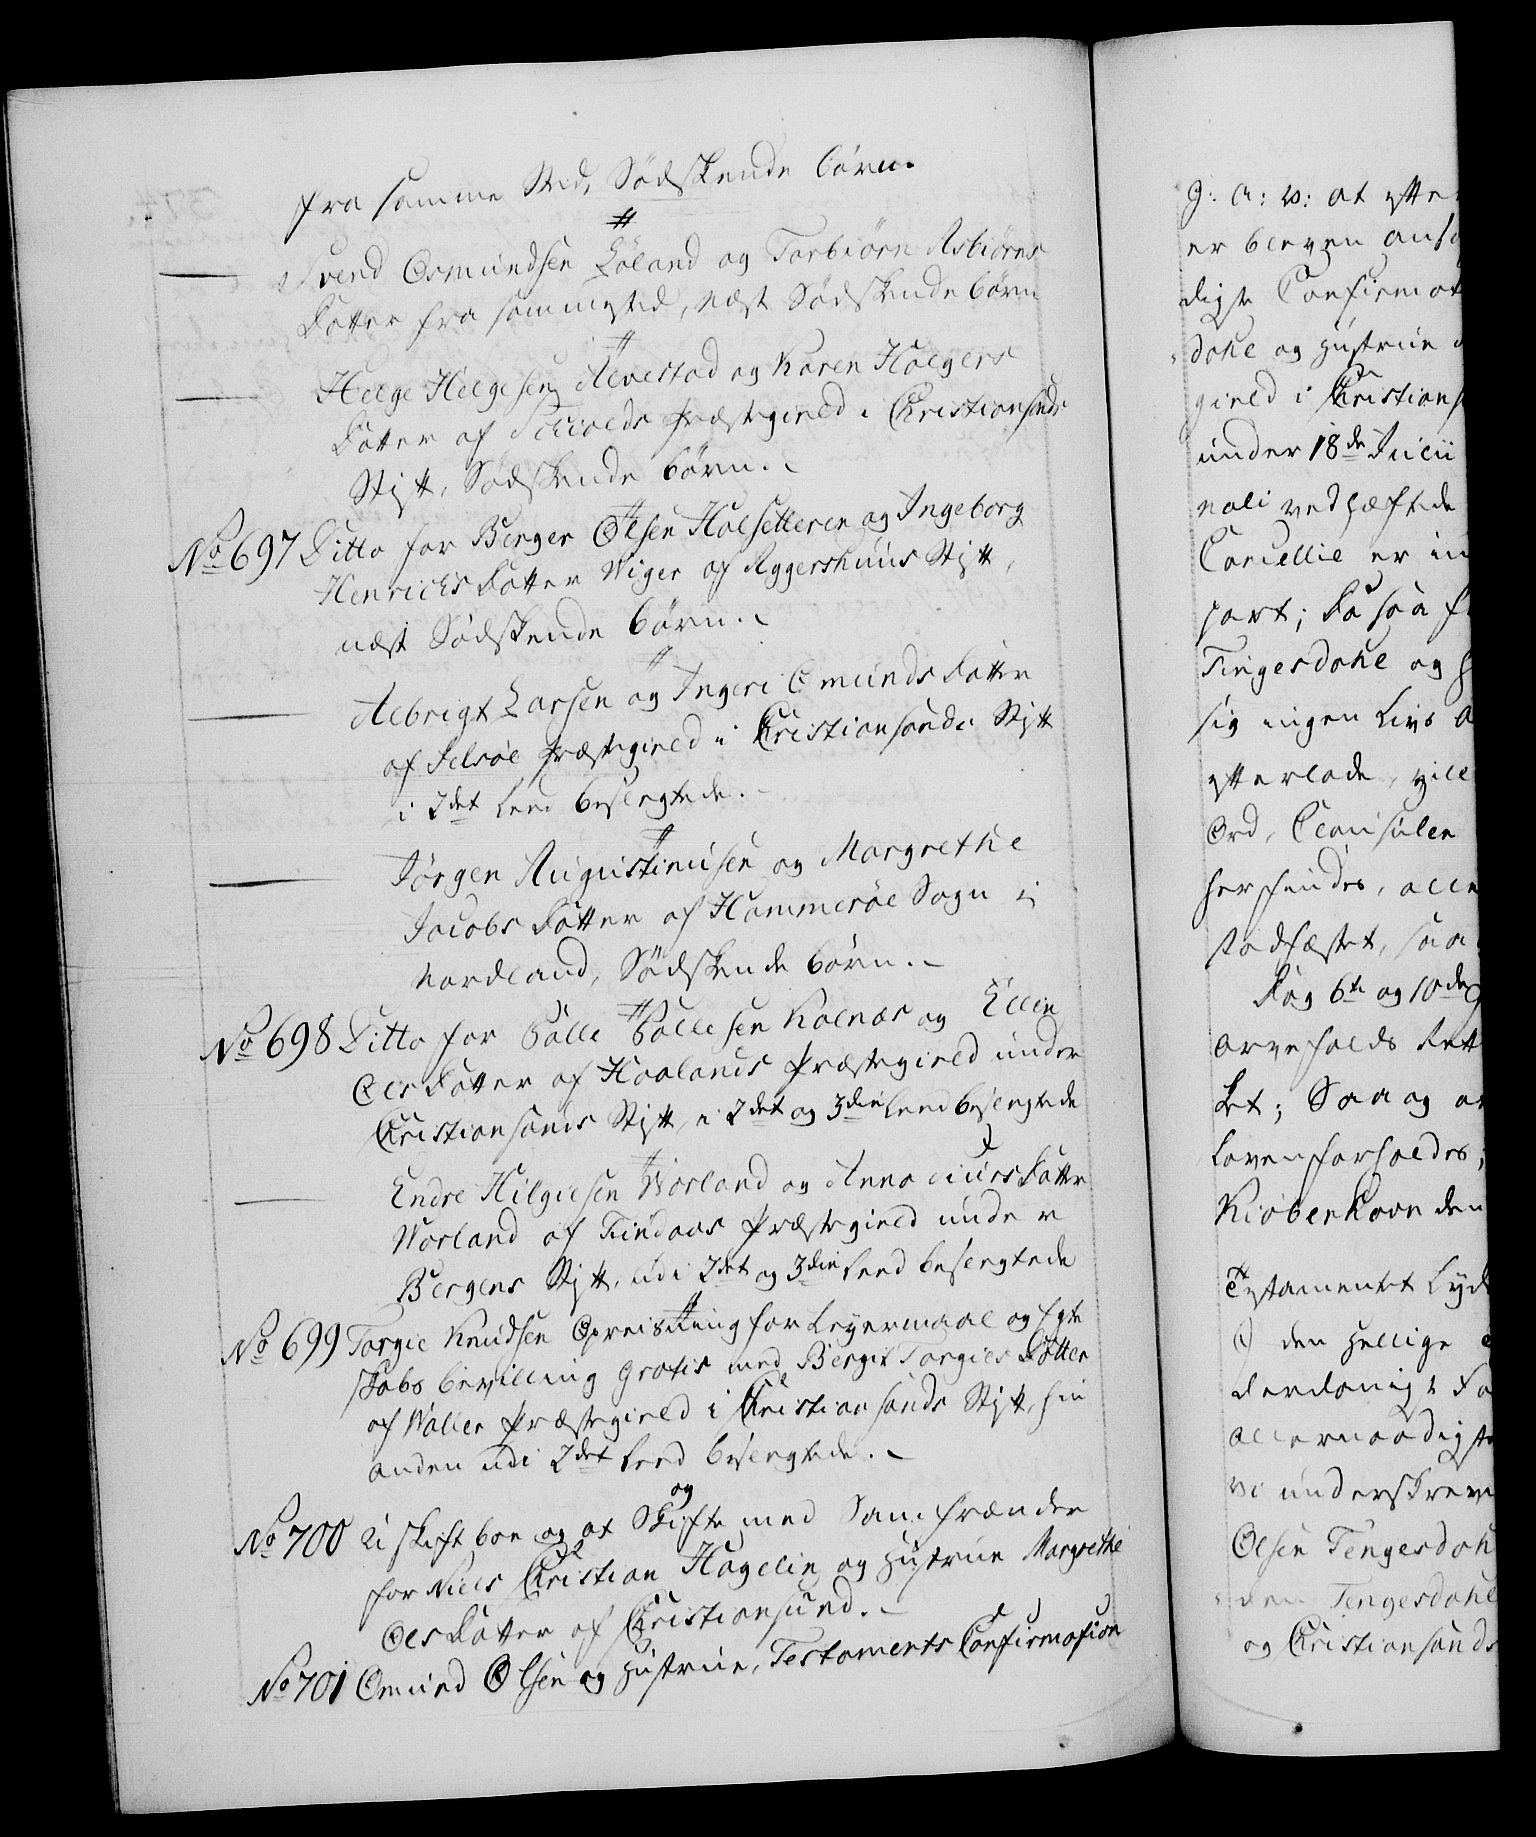 fra samme Sted, Sødskende børn.
#
Svend Osmundsen Løland og Torbiørn Asbiørns
Datter fra sammested, næst Sødskende børn
#
Helge Helgesen Alvestad og Karen Holgers
Datter af Præstegield i Christiansands
Stift, Sødskende børn.
#
No 697 Ditto for Berger Olsen Holsetteren og Ingeborg
Henrichs Datter Wiger af Aggershuus Stift,
næst Sødskende børn.
#
Albrigt Larsen og Ingeri Omunds Datter
af Præstegield i Christiansands Stift
i 2det Leed beslegtede.
#
Jørgen Augustinusen og Margrethe
Jacobs Datter af Hammerøe Sogn i
Nordland, Sødskende børn.
#
No 698 Ditto for Tolle Tollesen Kolnæs og Ellen
Ols Datter af Haalands Præstegield under
Christiansands Stift, i 2det og 3die Leed beslegtede
#
Endre Helgesen Worland og Anna Datter
Worland af Findaas Præstegield under
Bergens Stift, udi 2det og 3die Leed beslegtede
#
No 699 Torgie Knudsen Opreisning for Leyermaal og Egte
skabs bevilling gratis med Bergit Torgies Datter
af Walle Præstegield i Christiansands Stift, hin
anden udi 2det Leed beslegtede.
og
No 700 Uskiftboe og at Skifte med Samfrænder
for Niels Christian Hagelin og Hustrue Margrethe
Ols Datter af Christiansund.
No 701 Omund Olsen og Hustrue, Testaments Confirmation
g: A: V: at efter
er bleven
digste Confirmat
dahl og Hustrue
gield i Christians
under 18de Julii
nali vedhæftede
Cancellie er in
part; Da saa
Tingesdahl og H
sig ingen Livs A
efterlade, ville
Ord, Clausuler
herfindes, alle
stadfæstet, saa
Dog 6te og 10de
Arveholds Rett
ket; Saa og
Loven forholdes;
Kiøbenhavn den
Testamentet Lyd
den hellige
allernaadigste
Vi underskrevne
Olsen Tengesdah
den Tengesdahl
og Christiansands